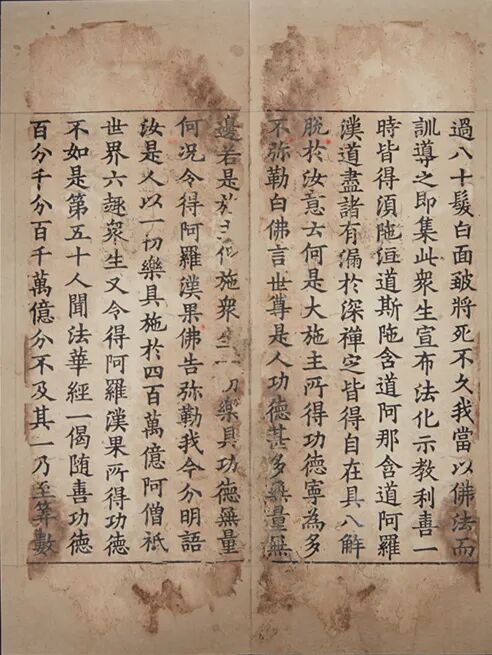 過八十髮白面皺將死不久我當以佛法而
訓導之即集此衆生宣布法化示教利喜一
時皆得須陁洹道斯陁含道阿那含道阿羅
漢道盡諸有漏於深禪定皆得自在具八解
脫於汝意云何是大施主所得功德寧為多
不弥勒白佛言世尊是人功德甚多無量無
邊若是施主施衆生一切樂具功德無量
何況令得阿羅漢果佛告弥勒我今分明語
汝是人以一切樂具施於四百萬億阿僧祇
世界六趣衆生又令得阿羅漢果所得功德
不如是第五十人聞法華經一偈随喜功德
百分千分百千萬億分不及其一乃至筭數